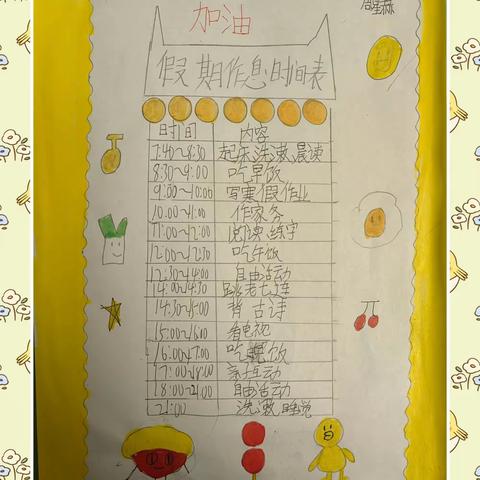 加油
假期作息时间表
时间 内容
7:40~8:30 起床、洗漱、晨读
8:30~9:00 吃早饭
9:00~10:00 写寒假作业
10:00~11:00 作家务
11:00~12:00 阅读、练字
12:00~12:30 吃午饭
12:30~14:00 自由活动
14:00~14:30
14:30~15:00 背古诗
15:00~16:00 看电视
16:00~17:00 吃晚饭
17:00~18:00 亲子互动
18:00~21:00 自由活动
21:00 洗漱、睡觉